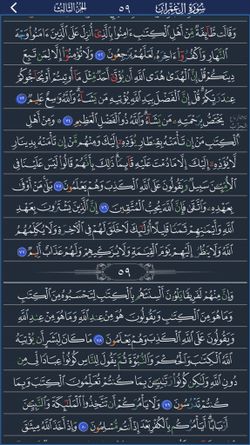 سُورَةُ آلِ عِمْرَانَ ٥٩ الجُزْءُ الثَّالِثُ
وَقَالَت طَّآئِفَةٌ مِّنْ أَهْلِ ٱلْكِتَٰبِ ءَامِنُوا۟ بِٱلَّذِىٓ أُنزِلَ عَلَى ٱلَّذِينَ ءَامَنُوا۟ وَجْهَ
ٱلنَّهَارِ وَٱكْفُرُوٓا۟ ءَاخِرَهُۥ لَعَلَّهُمْ يَرْجِعُونَ ٧٢ وَلَا تُؤْمِنُوٓا۟ إِلَّا لِمَن تَبِعَ
دِينَكُمْ قُلْ إِنَّ ٱلْهُدَىٰ هُدَى ٱللَّهِ أَن يُؤْتَىٰٓ أَحَدٌ مِّثْلَ مَآ أُوتِيتُمْ أَوْ يُحَآجُّوكُمْ
عِندَ رَبِّكُمْ قُلْ إِنَّ ٱلْفَضْلَ بِيَدِ ٱللَّهِ يُؤْتِيهِ مَن يَشَآءُ وَٱللَّهُ وَٰسِعٌ عَلِيمٌ ٧٣
يَخْتَصُّ بِرَحْمَتِهِۦ مَن يَشَآءُ وَٱللَّهُ ذُو ٱلْفَضْلِ ٱلْعَظِيمِ ٧٤ وَمِنْ أَهْلِ
ٱلْكِتَٰبِ مَنْ إِن تَأْمَنْهُ بِقِنطَارٍ يُؤَدِّهِۦٓ إِلَيْكَ وَمِنْهُم مَّنْ إِن تَأْمَنْهُ بِدِينَارٍ
لَّا يُؤَدِّهِۦٓ إِلَيْكَ إِلَّا مَا دُمْتَ عَلَيْهِ قَآئِمًا ذَٰلِكَ بِأَنَّهُمْ قَالُوا۟ لَيْسَ عَلَيْنَا فِى
ٱلْأُمِّيِّۦنَ سَبِيلٌ وَيَقُولُونَ عَلَى ٱللَّهِ ٱلْكَذِبَ وَهُمْ يَعْلَمُونَ ٧٥ بَلَىٰ مَنْ أَوْفَىٰ
بِعَهْدِهِۦ وَٱتَّقَىٰ فَإِنَّ ٱللَّهَ يُحِبُّ ٱلْمُتَّقِينَ ٧٦ إِنَّ ٱلَّذِينَ يَشْتَرُونَ بِعَهْدِ
ٱللَّهِ وَأَيْمَٰنِهِمْ ثَمَنًا قَلِيلًا أُو۟لَٰٓئِكَ لَا خَلَٰقَ لَهُمْ فِى ٱلْءَاخِرَةِ وَلَا يُكَلِّمُهُمُ
ٱللَّهُ وَلَا يَنظُرُ إِلَيْهِمْ يَوْمَ ٱلْقِيَٰمَةِ وَلَا يُزَكِّيهِمْ وَلَهُمْ عَذَابٌ أَلِيمٌ ٧٧
٥٩
وَإِنَّ مِنْهُمْ لَفَرِيقًا يَلْوُۥنَ أَلْسِنَتَهُم بِٱلْكِتَٰبِ لِتَحْسَبُوهُ مِنَ ٱلْكِتَٰبِ
وَمَا هُوَ مِنَ ٱلْكِتَٰبِ وَيَقُولُونَ هُوَ مِنْ عِندِ ٱللَّهِ وَمَا هُوَ مِنْ عِندِ ٱللَّهِ
وَيَقُولُونَ عَلَى ٱللَّهِ ٱلْكَذِبَ وَهُمْ يَعْلَمُونَ ٧٨ مَا كَانَ لِبَشَرٍ أَن يُؤْتِيَهُ
ٱللَّهُ ٱلْكِتَٰبَ وَٱلْحُكْمَ وَٱلنُّبُوَّةَ ثُمَّ يَقُولَ لِلنَّاسِ كُونُوا۟ عِبَادًا لِّى مِن
دُونِ ٱللَّهِ وَلَٰكِن كُونُوا۟ رَبَّٰنِيِّۦنَ بِمَا كُنتُمْ تُعَلِّمُونَ ٱلْكِتَٰبَ وَبِمَا
كُنتُمْ تَدْرُسُونَ ٧٩ وَلَا يَأْمُرَكُمْ أَن تَتَّخِذُوا۟ ٱلْمَلَٰٓئِكَةَ وَٱلنَّبِيِّۦنَ
أَرْبَابًا أَيَأْمُرُكُم بِٱلْكُفْرِ بَعْدَ إِذْ أَنتُم مُّسْلِمُونَ ٨٠ وَإِذْ أَخَذَ ٱللَّهُ مِيثَٰقَ